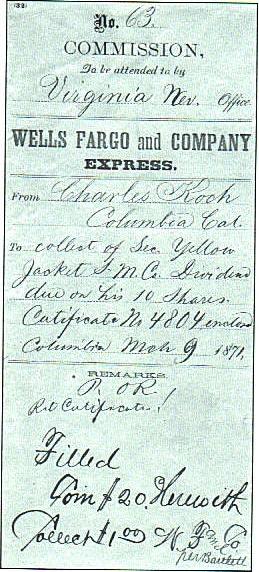 (32)
No. 63.
COMMISSION,
To be attended to by
Virginia Nev. Office
WELLS FARGO and COMPANY
EXPRESS.
From Charles Koch
Columbia Cal.
To collect of Sec Yellow
Jacket S. M. Co. Dividend
due on his 10 Shares.
Certificate No 4804 enclosed
Columbia Mch 9 1871,
REMARKS.
P. OR
Ret Certificate!
Filled
Coin $20. Herewith
Collect $1.00 W. F & Co
per Bartlett